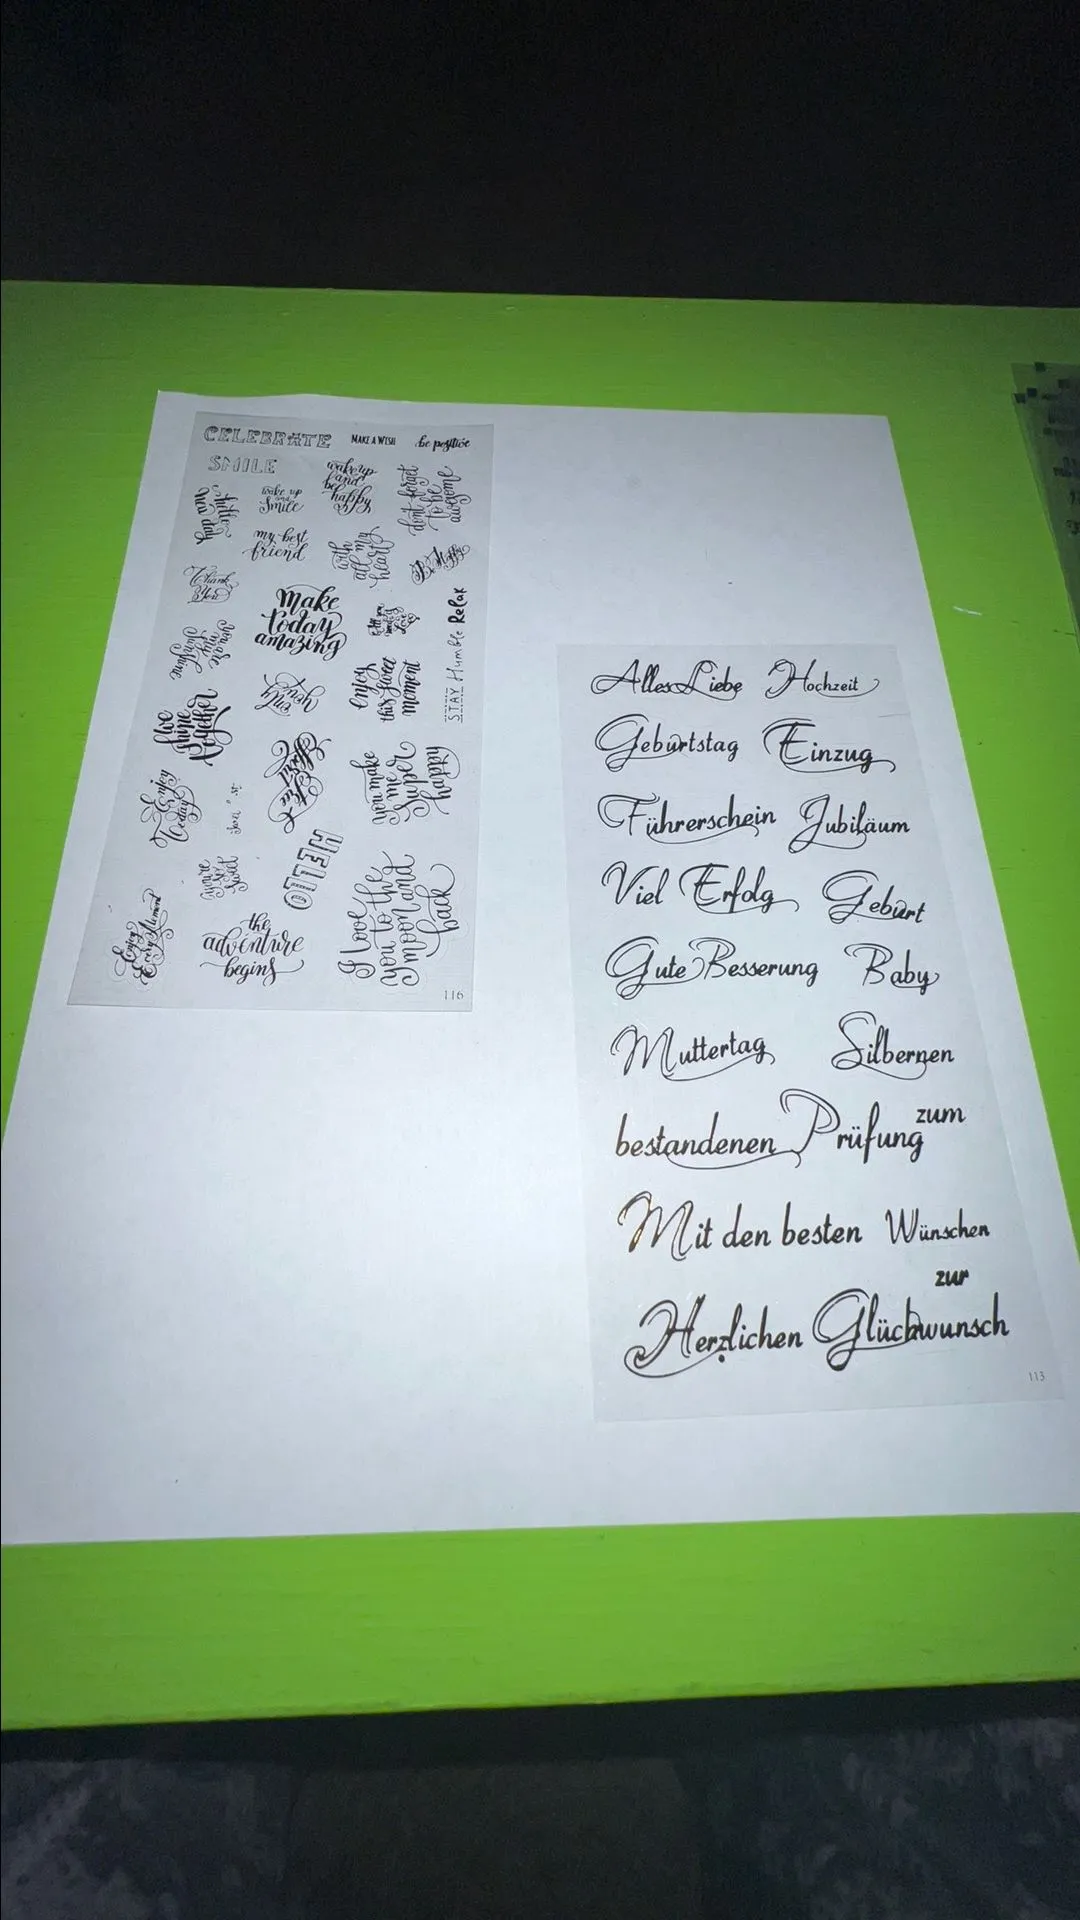 CELEBRATE MAKE A WISH be positive
SMILE
wake up
and
be
happy
don't forget
to be
awesome
wake up
and
Smile
hello
new day
my best
friend
with
all my
heart
Thank
You
make
today
amazing
you are
my
Sunshine
enjoy
this sweet
moment
STAY Humble Relax
we
shine
together
you make
me
super
happy
Enjoy
Today
HELLO
you're
so
sweet
I love
you to the
moon and
back
Enjoy
Every Moment
the
adventure
begins
116
Alles Liebe Hochzeit
Geburtstag Einzug
Führerschein Jubiläum
Viel Erfolg Geburt
Gute Besserung Baby
Muttertag Silbernen
bestandenen Prüfung zum
Mit den besten Wünschen
zur
Herzlichen Glückwunsch
113